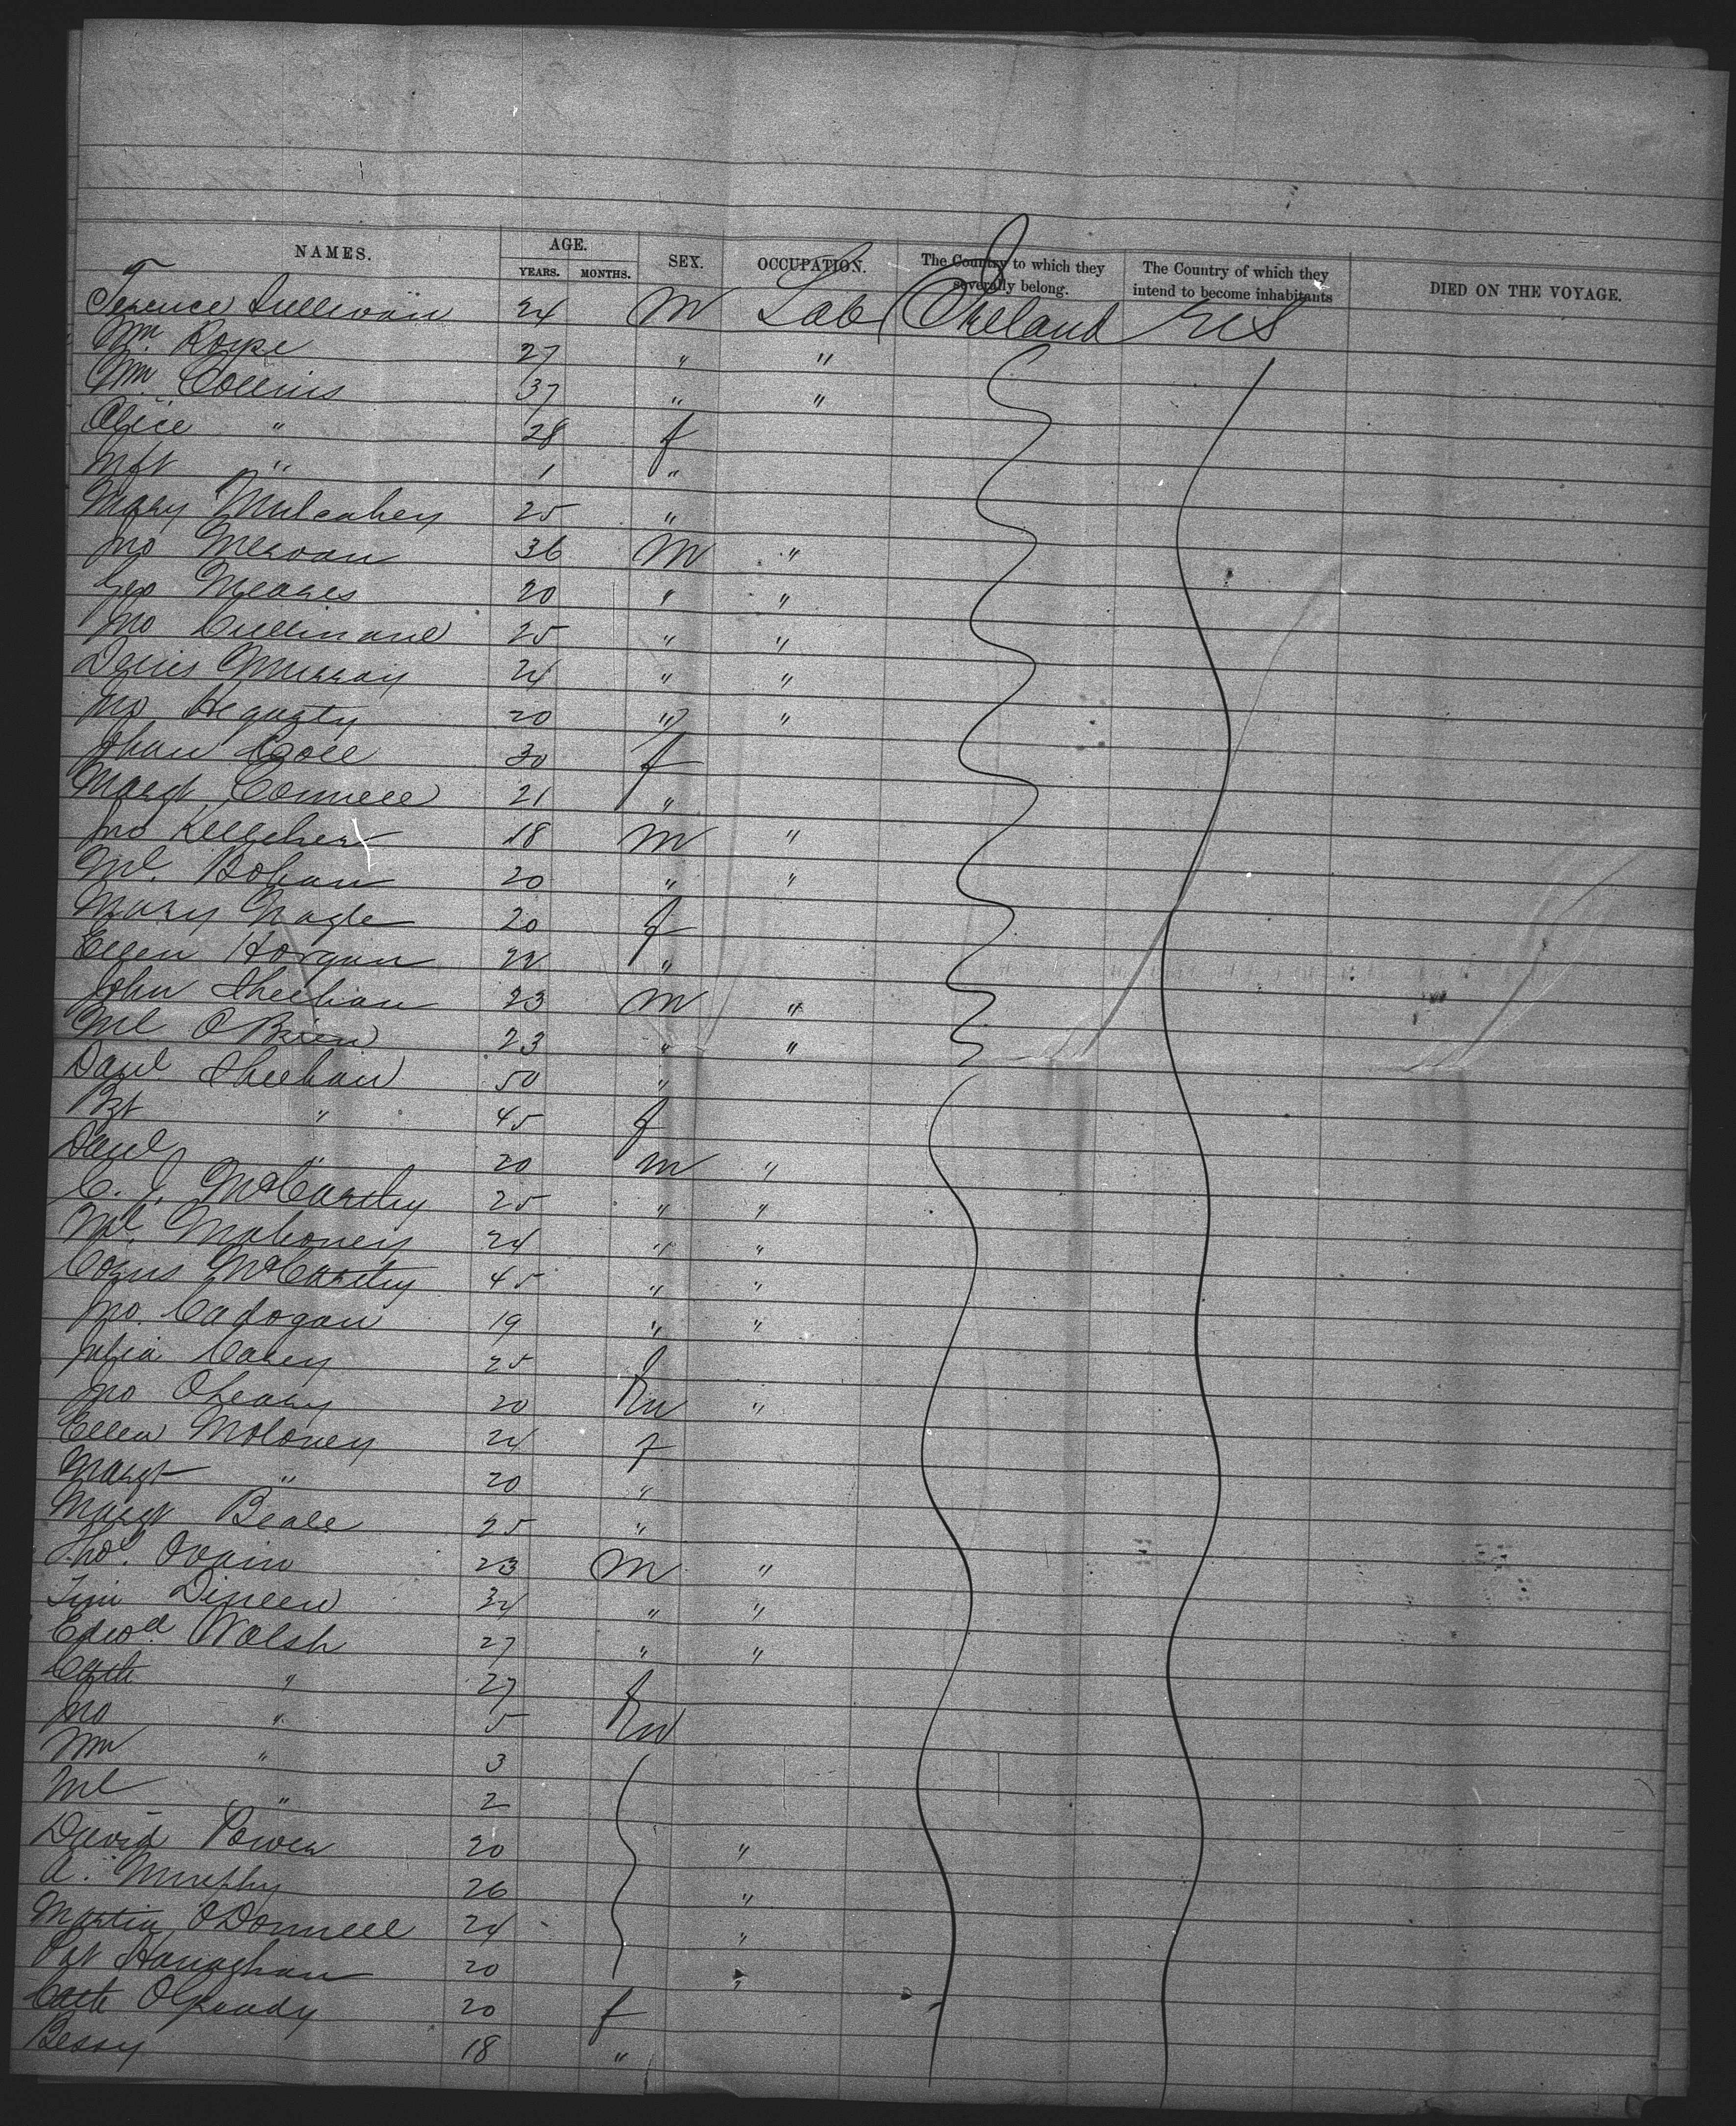 NAMES. AGE. SEX. OCCUPATION. The Country to which they severally belong. The Country of which they intend to become inhabitants DIED ON THE VOYAGE.
YEARS. MONTHS.
Terence Sullivan 24 M Lab Ireland US
Wm Roche 27 " "
Wm Collins 37 " "
Alice " 28 f
Mgt " 1 "
Mary Mulcahey 25 "
Jno 36 M "
Geo Meares 20 " "
Jno Cullinane 25 " "
Denis Murray 24 " "
Jno Hegarty 20 " "
Johan Coll 30 f
Margt Connell 21 "
Jno Kelleher 18 M "
Ml. Bohan 20 " "
Mary Nagle 20 f
Ellen Horgan 22 "
John Sheehan 23 M "
Ml O'Brien 23 " "
Danl. Sheehan 50 "
Bgt " 45 f
Danl " 20 M "
C. J. McCarthy 25 " "
Ml. Mahoney 24 " "
Corns McCarthy 45 " "
Jno. Cadogan 19 " "
Julia Carey 25 f
Jno OLeary 20 M "
Ellen Moloney 24 f
Margt " 20 "
Margt Beale 25 "
Tho. 23 M "
Tim Dineen 34 " "
Edwd. Walsh 27 " "
Cath " 27 f
Jno " 5 M
Wm " 3
Ml " 2
David Power 20 "
A. Murphy 26 "
Martin ODonnell 24 "
Pat Hanaghan 20 "
Cath OGrady 20 f
Bessy 18 "